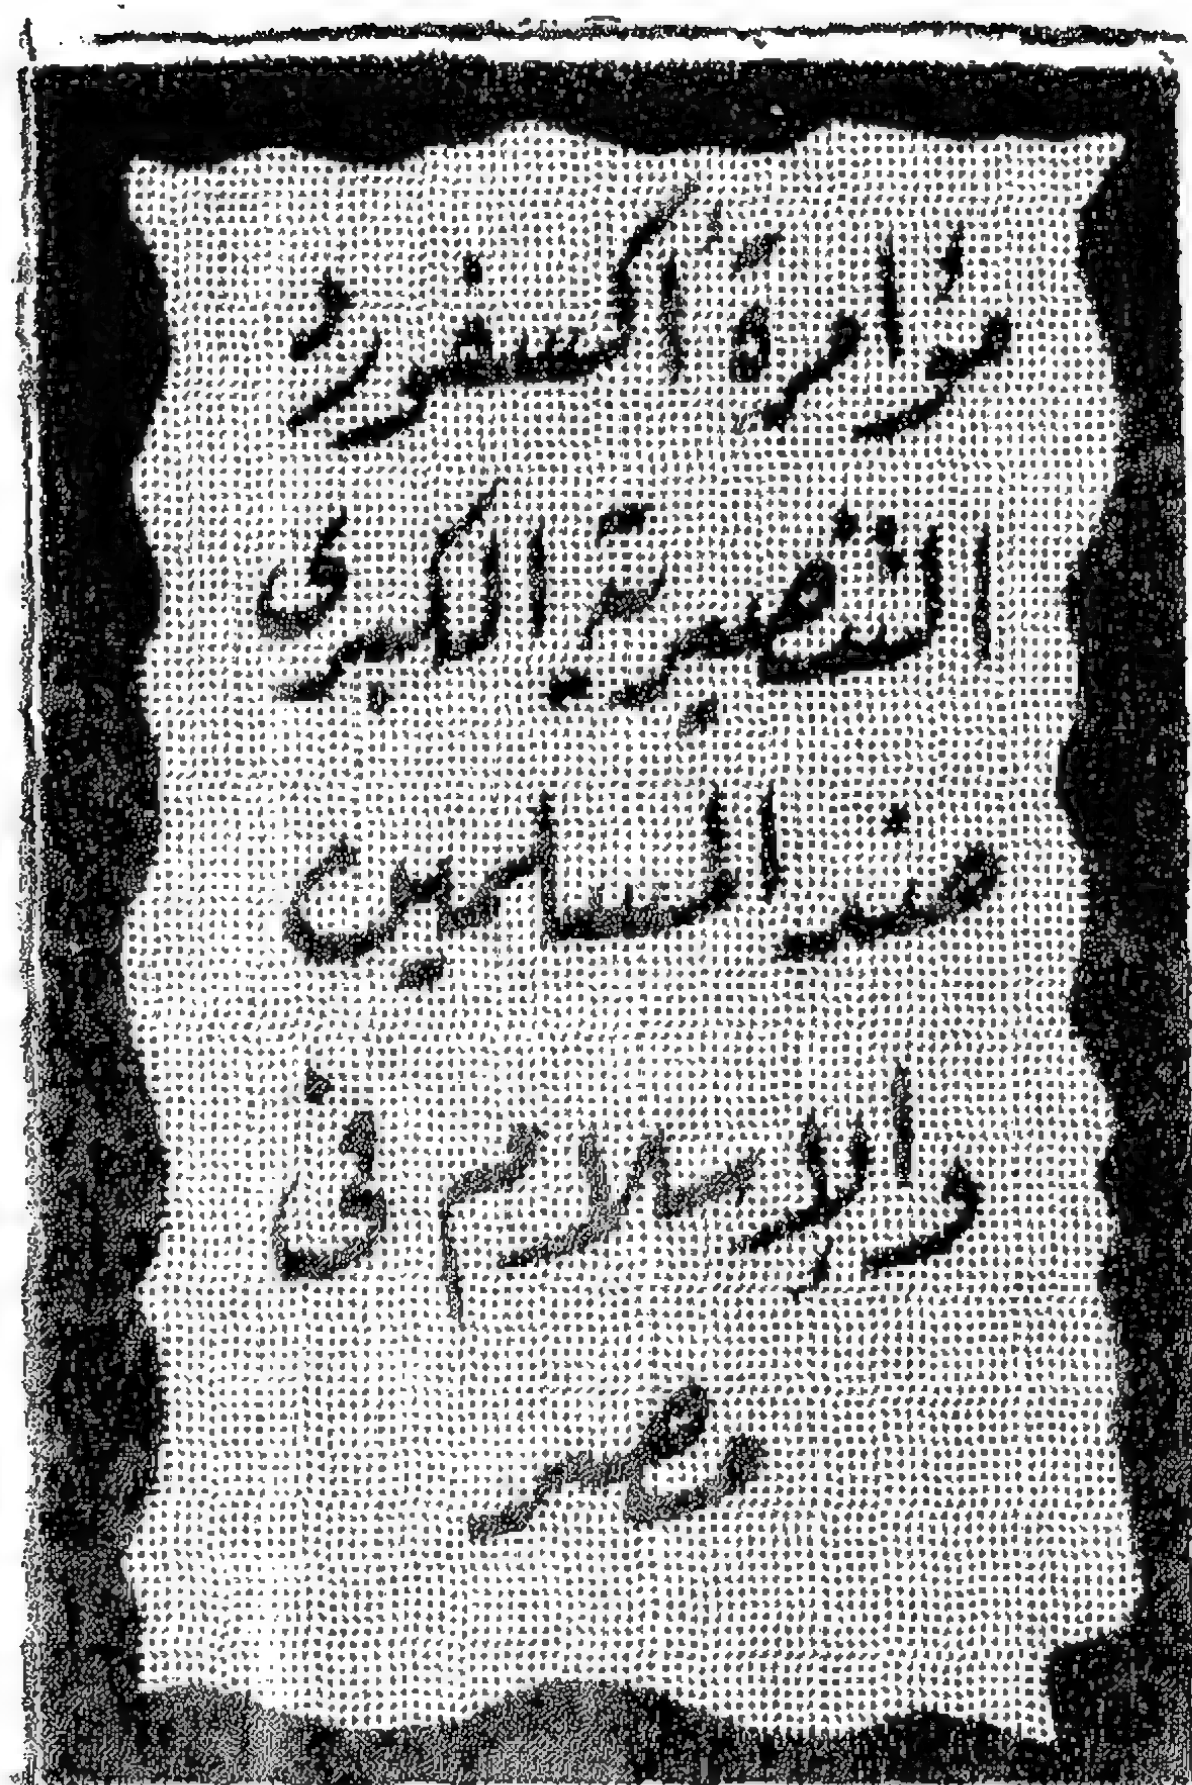 مؤامرة أكسفورد
التنصيرية الكبرى
ضد المسلمين
والإسلام فى
مصر